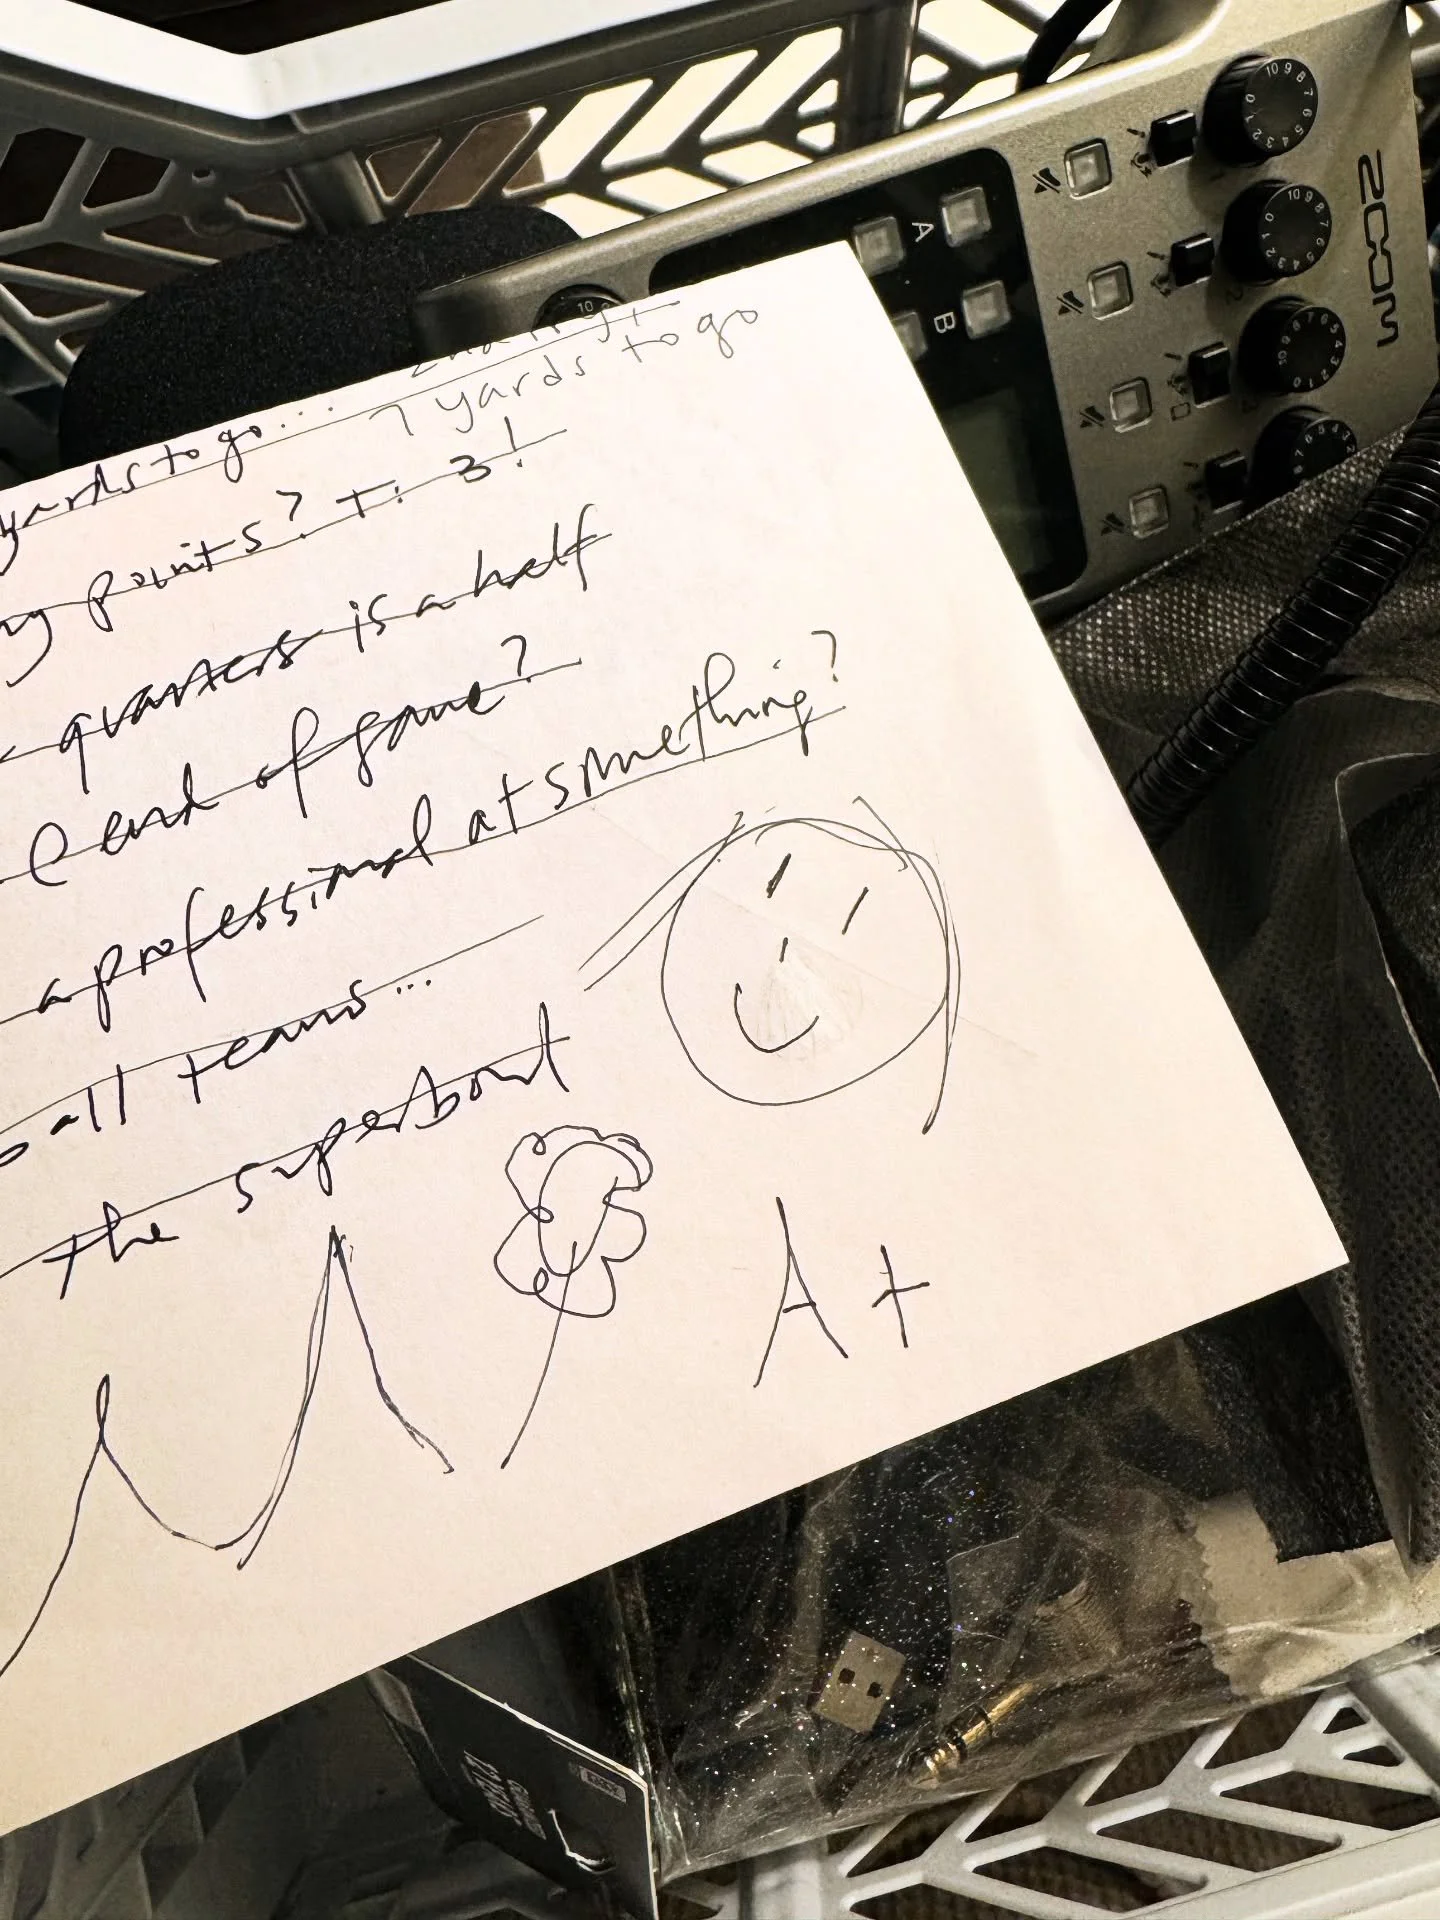 7 yards to go
yards to go...
points? + : 3!
quarters is a half
end of game?
a professional at something?
all teams...
the superbowl
A+
ZOOM
A
B